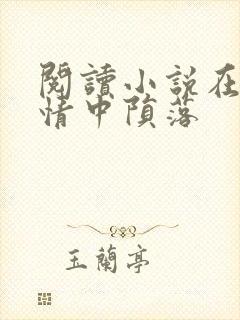 閱讀小説在
情中陨落
玉蘭亭